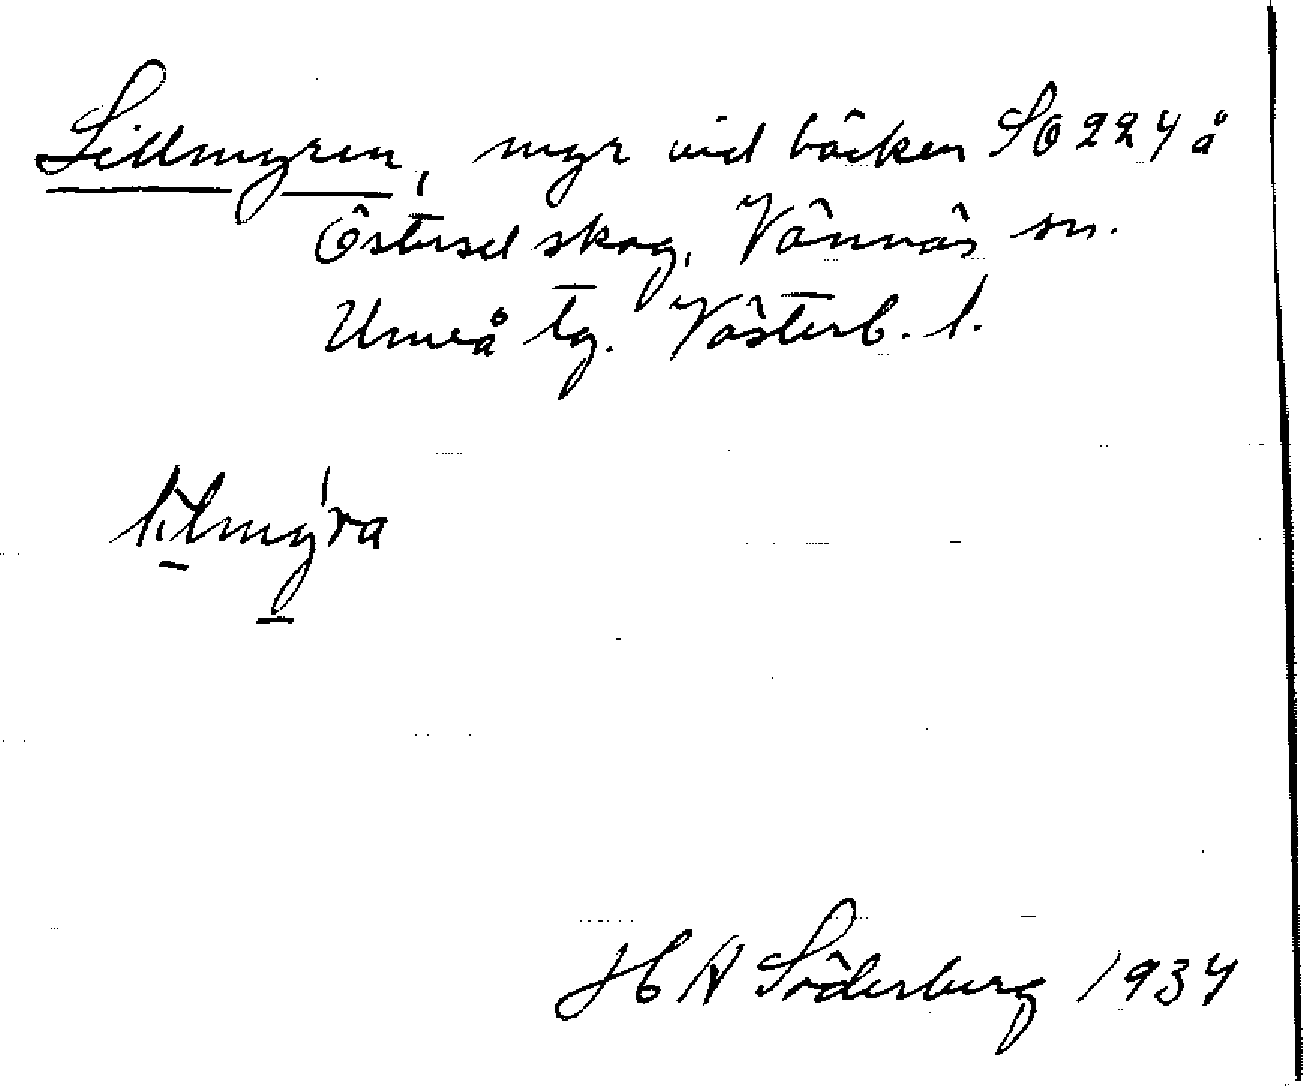 Lillmyren, myr vid bäcken SO 224 å
Östersel skog, Vännäs sn.
Umeå tg. Västerb. l.
lilmy'ra
H A Söderberg 1934